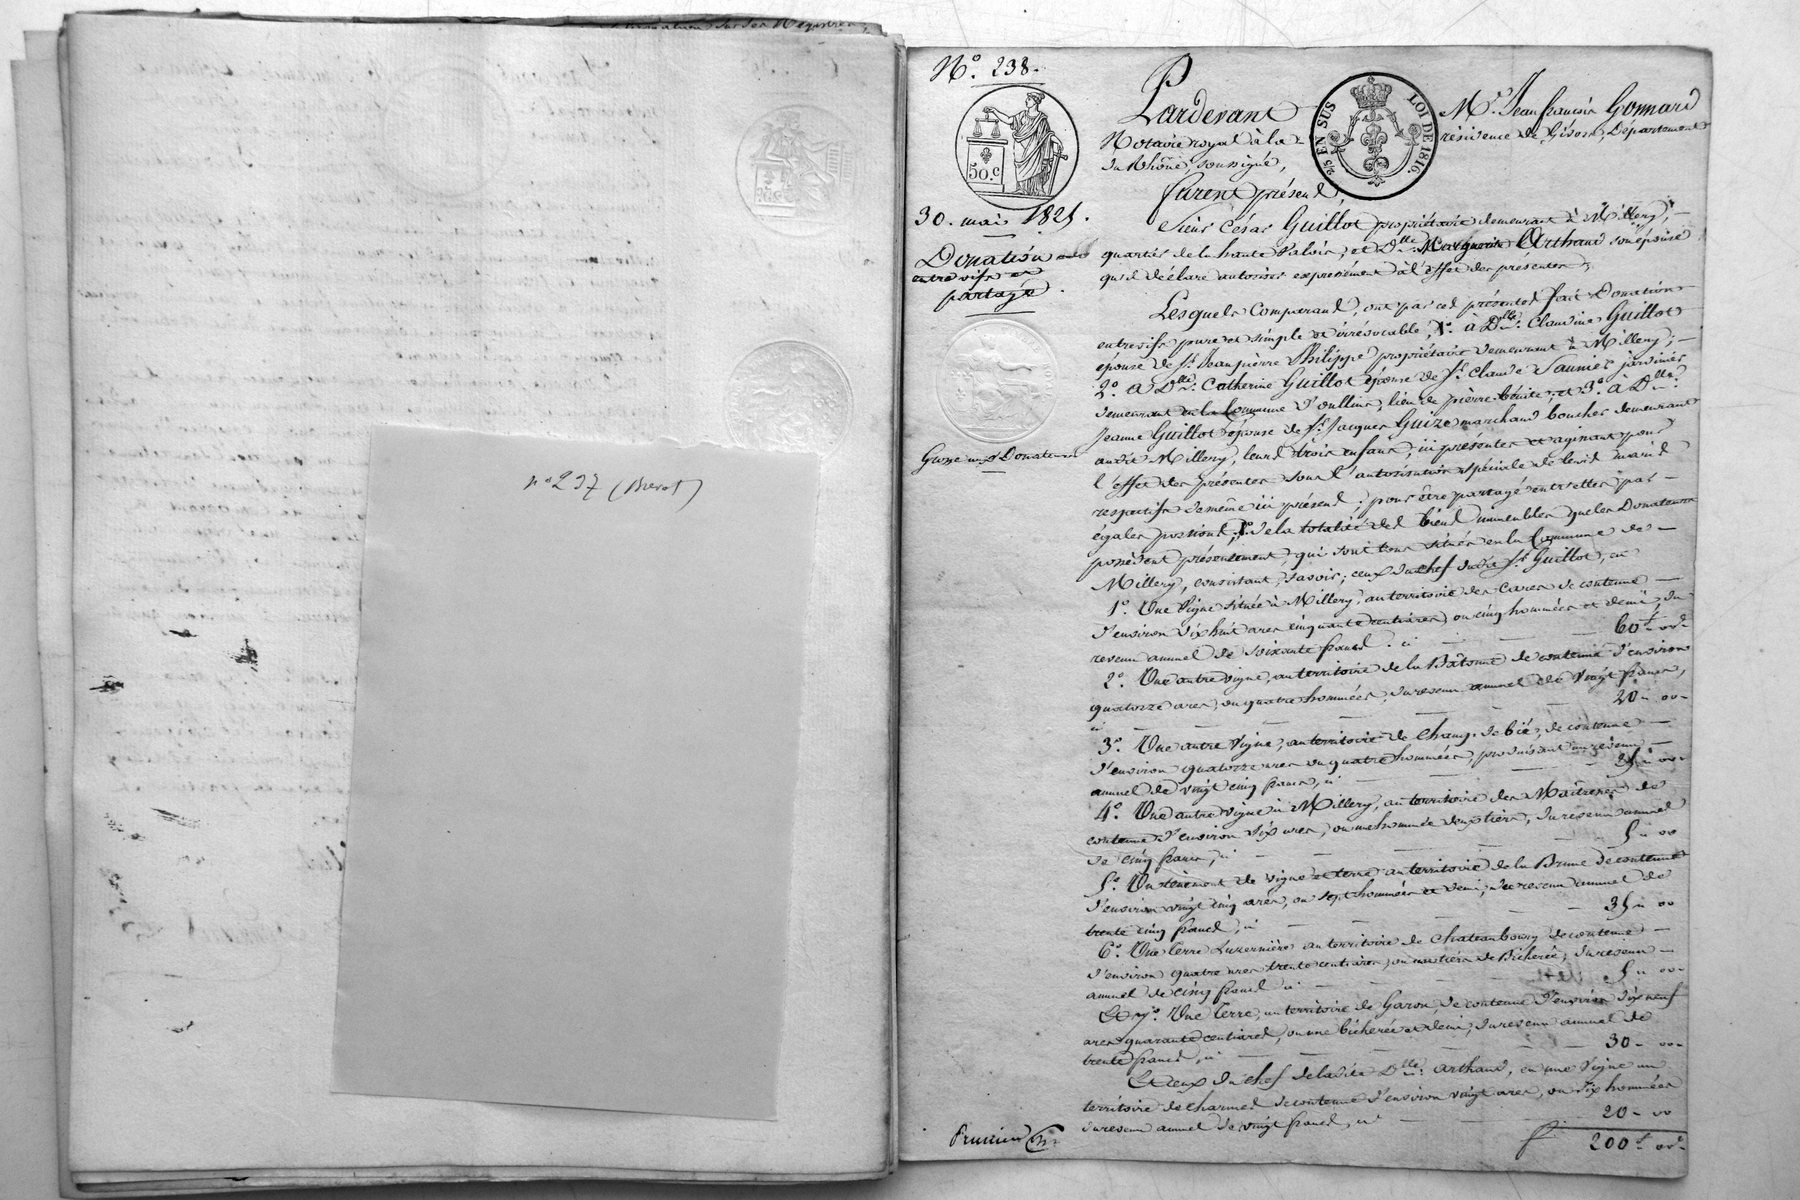 n° 237 (Brevet)
N° 238.
50.c
30. mai 1821.
Donation
entre vifs et
partage.
Grosse aux Donateurs
2/5 EN SUS LOI DE 1816.
Pardevant Me. Jean françois Gonnard
Notaire royal à la résidence de Givors, Département
du Rhône, soussigné,
Furent présens,
Sieur César Guillot propriétaire demeurant à Millery,
quartier de la haute Valois, et Dlle. Marguerite Arthaud son épouse
qu'il déclare autoriser expressément à l'effet des présentes,
Lesquels comparans, ont par ces présentes fait Donation
entrevifs pure et simple et irrévocable, 1°. à Dlle. Claudine Guillot
épouse de Sr. Jean pierre Philippe propriétaire demeurant à Millery;
2°. à Dlle. Catherine Guillot épouse de Sr. Claude Saunier jardinier
demeurant en la Commune d'oullins, lieu de pierre bénite; et 3°. à Dlle.
Jeanne Guillot épouse de Sr. Jacques Guize marchand boucher demeurant
audit Millery, leurs trois enfans, ici présentes et agissant pour
l'effet des présentes sous l'autorisation spéciale de leurs maris
respectifs de même ici présens; pour être partagé entr'elles par
égales portions, de la totalité des biens immeubles que les Donateurs
possèdent présentement, qui sont tous situés en la Commune de
Millery, consistant, savoir; ceux du chef dudit Sr. Guillot, en
1°. Une Vigne située à Millery, au territoire des Cares de contenue
d'environ dix huit ares cinquante centiares, ou cinq hommées et demi, du
revenu annuel de soixante francs. ci 60f. 00c.
2°. Une autre vigne, au territoire de la Bâtonne de contenue d'environ
quatorze ares, ou quatre hommées, du revenu annuel de vingt francs,
ci 20 - 00 -
3°. Une autre Vigne, au territoire de Champ de bié, de contenue
d'environ quatorze ares ou quatre hommées, produisant un revenu
annuel de vingt cinq francs, ci 25 - 00 -
4°. Une autre vigne à Millery, au territoire des Maîtresses de
contenue d'environ six ares, ou une hommée deux tiers, du revenu annuel
de cinq francs, ci 5 - 00
5°. Un tènement de vigne et terre au territoire de la Brune de contenue
d'environ vingt cinq ares, ou sept hommées et demi, de revenu annuel de
trente cinq francs, ci 35 - 00
6°. Une terre Luzernière au territoire de Chateaubourg de contenue
d'environ quatre ares trente centiares, ou un tiers de Bicherée, du revenu
annuel de cinq francs ci 5 - 00 -
Et 7°. Une terre, au territoire de Garon, de contenue d'environ dix neuf
ares quarante centiares, ou une bicherée et demi, du revenu annuel de
trente francs, ci 30 - 00 -
Et ceux du chef de ladite Dlle. Arthaud, en une Vigne au
territoire de charmes de contenue d'environ vingt ares, ou six hommées
du revenu annuel de vingt francs, ci 20 - 00
200f. 00c.